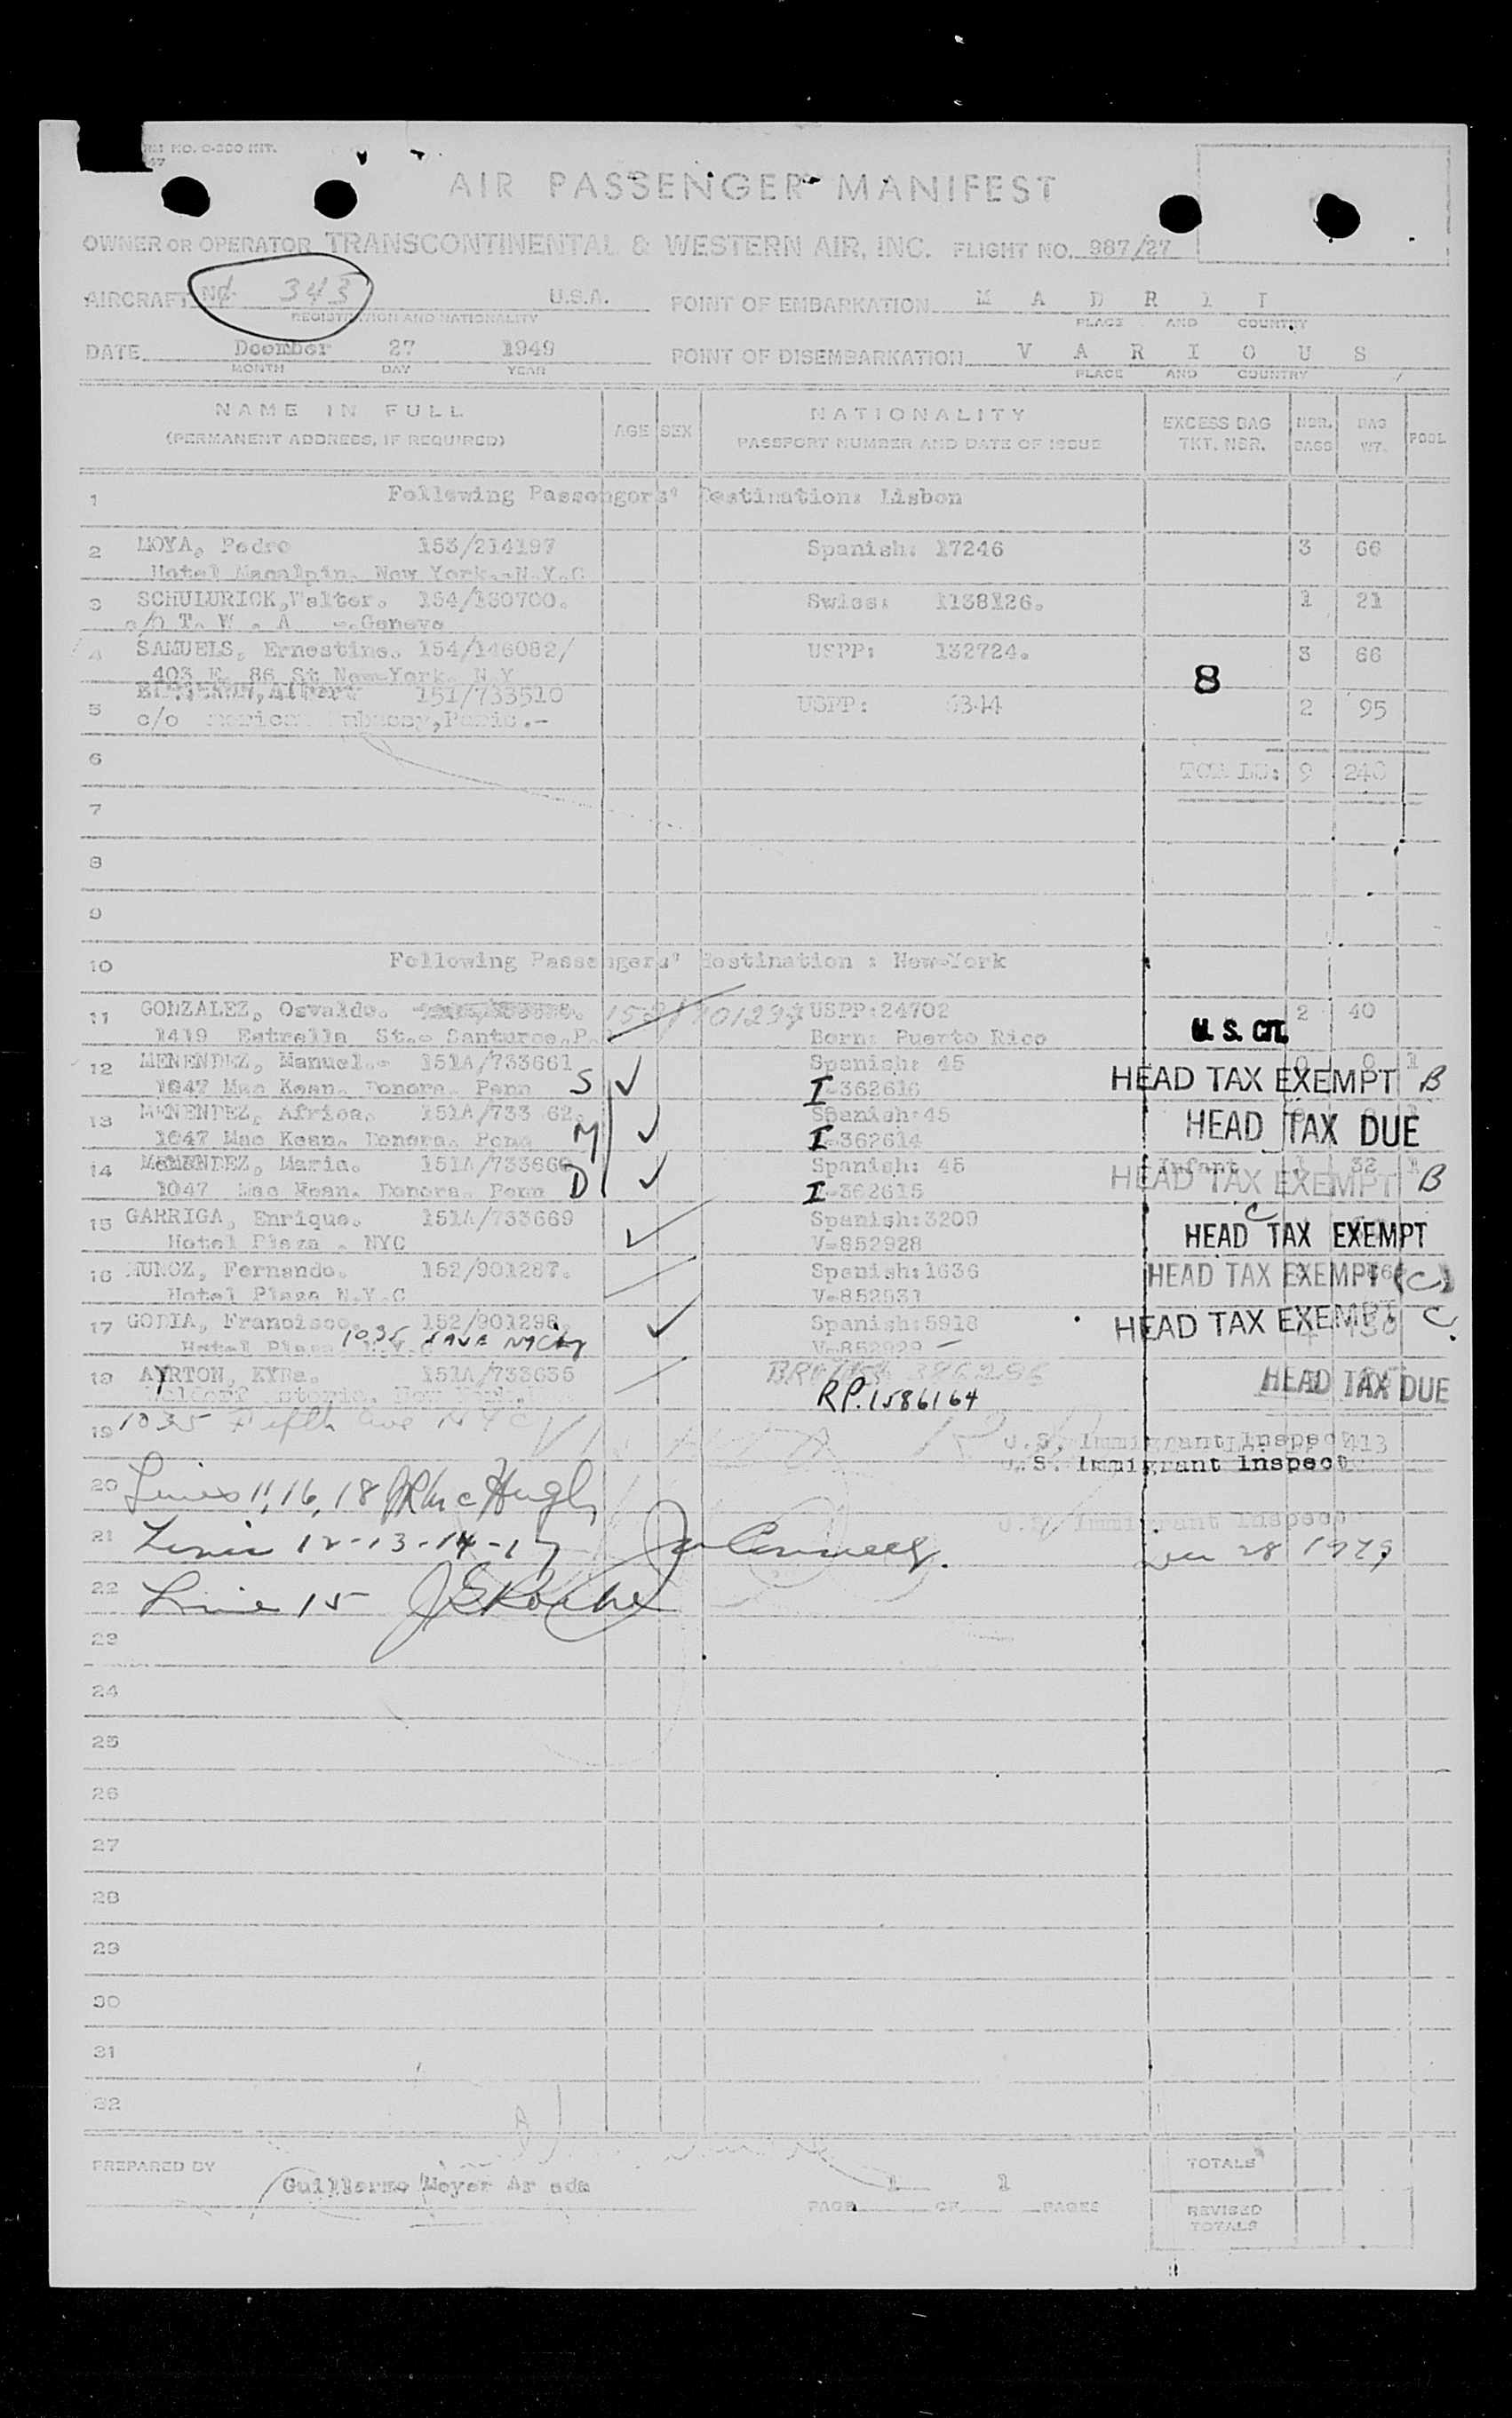 RM NO. C-330 INT.
AIR PASSENGER MANIFEST
OWNER OR OPERATOR TRANSCONTINENTAL & WESTERN AIR, INC. FLIGHT NO. 987/27
AIRCRAFT NC 343 U.S.A. POINT OF EMBARKATION M A D R I
REGISTRATION AND NATIONALITY PLACE AND COUNTRY
DATE Dcember 27 1949 POINT OF DISEMBARKATION V A R I O U S
MONTH DAY YEAR PLACE AND COUNTRY
NAME IN FULL AGE SEX NATIONALITY EXCESS BAG NBR. BAG POOL
(PERMANENT ADDRESS, IF REQUIRED) PASSPORT NUMBER AND DATE OF ISSUE TKT. NBR. BAGS WT.
1 Following Passengers' Destination: Lisbon
2 MOYA, Pedro 153/214197 Spanish: 17246 3 66
Hotel Macalpin. New York.-N.Y.C
3 SCHULURICK, Walter. 154/130700. Swiss: 1138126. 1 21
c/o T. W. A -.Geneve
4 SAMUELS, Ernestine. 154/146082/ USPP: 132724. 3 66
403 E. 86 St New-York. N.Y
8
5 151/733510 USPP: 6344 2 95
c/o Embassy, Paris.-
6 9 248
7
8
9
10 Following Passengers' destination : New-York
11 GONZALEZ, Osvaldo. USPP:24702 2 40
1419 Estrella St.- Santurce.P. Born: Puerto Rico U. S. CIT.
12 MENENDEZ, Manuel.- 151A/733661 Spanish: 45 0 0 1
1047 Mac Kean. Donora. Penn S I-362616 HEAD TAX EXEMPT B
13 MENENDEZ, Africa. 151A/733 62. Spanish:45
1047 Mac Kean. Donora. Penn M I-362614 HEAD TAX DUE
14 MENENDEZ, Maria. 151A/733660 Spanish: 45 Infant 1 32 1
1047 Mac Kean. Donora. Penn D I-362615 HEAD TAX EXEMPT B
15 GARRIGA, Enrique. 151A/733669 Spanish:3209 C
Hotel Plaza - NYC V-852928 HEAD TAX EXEMPT
16 MUNOZ, Fernando. 152/901287. Spanish:1636 HEAD TAX EXEMPT (C)
Hotel Plaza N.Y.C V-852931
17 GODIA, Francisco. 152/901298. Spanish:5918 HEAD TAX EXEMPT C
Hotel Plaza 1035 5 AVE NYCity V-852929
18 AYRTON, KYRa. 151A/733635 BRITISH 386296 HEAD TAX DUE
New York. RP.1586164
19 1035 Fifth Ave NYC U.S. Immigrant Inspect 413
U.S. Immigrant Inspect
20 Lines 11, 16, 18 JR McHugh
U.S. Immigrant Inspect
21 Lines 12-13-14-17 Dec 28 1949
22 Line 15 J E Roche
23
24
25
26
27
28
29
30
31
32
PREPARED BY Guillermo Meyer TOTALS
PAGE 1 OF 1 PAGES REVISED
TOTALS